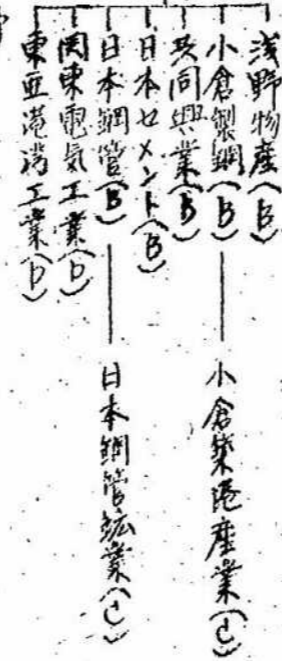 浅野物産(B)
小倉製鋼(B)
小倉築港産業(C)
共同興業(B)
日本セメント(B)
日本鋼管(B)
日本鋼管鉱業(C)
関東電気工業(D)
東亜港湾工業(D)